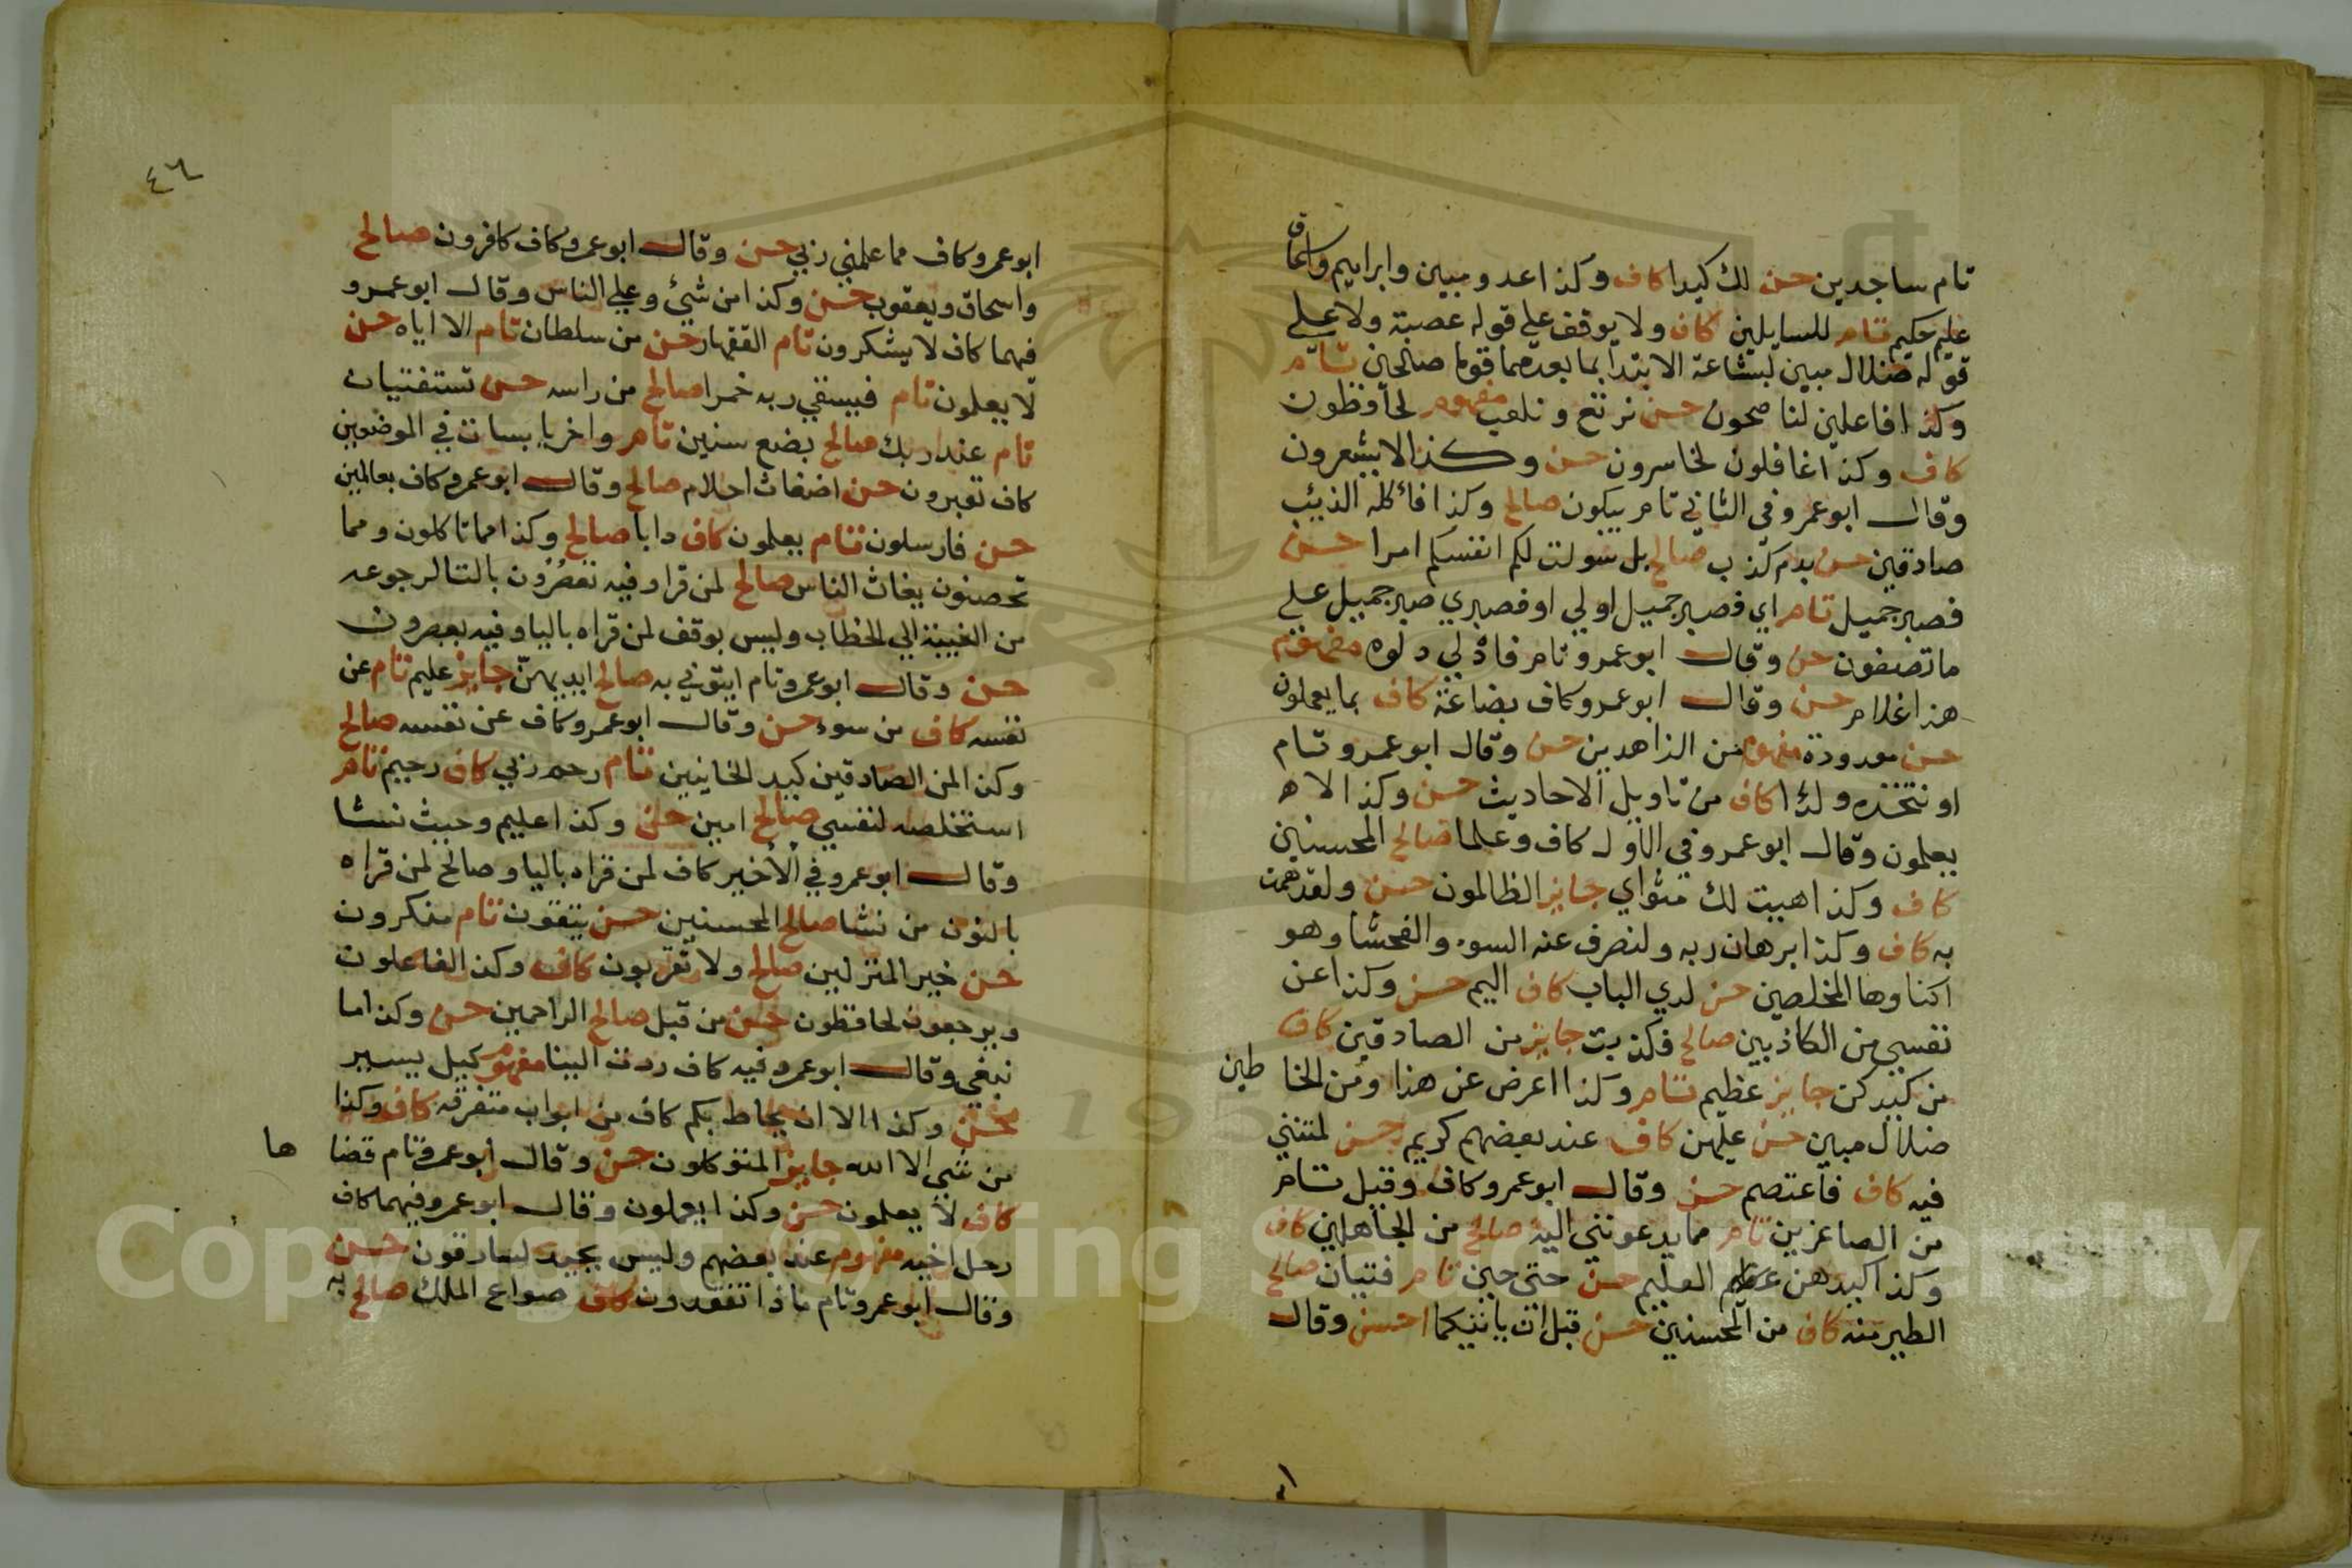 تام ساجدين حسن لك كيدا كاف وكذا عدو مبين وابراهيم واسحاق
عليم حكيم تام للسايلين كاف ولا يوقف علي قوله عصبة ولا علي
قوله ضلال مبين لبشاعة الابتدا بما بعدهما قوما صالحين تام
وكذا فاعلين لناصحون حسن نرتع ونلعب مفهوم لحافظون
كاف وكذا غافلون لخاسرون حسن وكذا لا يشعرون
وقال ابو عمرو في الثاني تام يبكون صالح وكذا فأكله الذيئب
صادقين حسن بدم كذب صالح بل سولت لكم انفسكم امرا حسن
فصبر جميل تام اي فصبر جميل اولي او فصبري صبر جميل علي
ما تصفون حسن وقال ابو عمرو تام فادلي دلوه مفهوم
هذا غلام حسن وقال ابو عمرو كاف بضاعة كاف بما يعملون
حسن معدودة مفهوم من الزاهدين حسن وقال ابو عمرو تام
او نتخذه ولدا كاف من تاويل الاحاديث حسن وكذا لا
يعلمون وقال ابو عمرو في الاول كاف وعلما صالح المحسنين
كاف وكذا هيت لك مثواي جايز الظالمون حسن ولقد همت
به كاف وكذا برهان ربه ولنصرف عنه السوء والفحشا وهو
اكفاوها المخلصين حسن لدي الباب كاف اليم حسن وكذا عن
نفسي من الكاذبين صالح فكذبت جايز من الصادقين كاف
من كيدكن جايز عظيم تام وكذا اعرض عن هذا ومن الخا طين
ضلال مبين حسن عليهن كاف عند بعضهم كريم حسن لمتنني
فيه كاف فاعتصم حسن وقال ابو عمرو كاف وقيل تام
من الصاغرين تام مما يدعونني اليه صالح من الجاهلين كاف
وكذا كيدهن العليم حسن حتى حين تام فتيان صالح
الطير منه كاف من المحسنين حسن قبل ان ياتيكما حسن وقال
٤٦
ابو عمرو كاف مما علمني ربي حسن وقال ابو عمرو كاف كافرون صالح
واسحاق ويعقوب حسن وكذا من شيئ وعلي الناس وقال ابو عمرو
فيهما كاف لا يشكرون تام القهار حسن من سلطان تام الا اياه حسن
لا يعلمون تام فيسقي ربه خمرا صالح من راسه حسن تستفتيان
تام عند ربك صالح بضع سنين تام واخر يابسات في الموضعين
كاف تعبرون حسن اضغاث احلام صالح وقال ابو عمرو كاف بعالمين
حسن فارسلون تام يعلمون كاف دابا صالح وكذا مما تاكلون ومما
تحصنون يغاث الناس صالح لمن قرا وفيه تعصرون بالتا لرجوعه
من الغيبة الي الخطاب وليس بوقف لمن قراه باليا وفيه يعصرون
حسن وقال ابو عمرو تام ايتوني به صالح ايديهن جايز عليم تام عن
نفسه كاف من سوء حسن وقال ابو عمرو كاف عن نفسه صالح
وكذا لمن الصادقين كيد الخاينين تام رحم ربي كاف رحيم تام
استخلصه لنفسي صالح امين حسن وكذا عليم وحيث نشا
وقال ابو عمرو في الأخير كاف لمن قراه باليا وصالح لمن قراه
بالنون من نشا صالح المحسنين حسن يتقون تام منكرون
حسن خير المنزلين صالح ولا تقربون كاف وكذا لفاعلون
ويرجعون لحافظون حسن من قبل صالح الراحمين حسن وكذا ما
نبغي وقال ابو عمرو فيه كاف ردت الينا مفهوم كيل يسير
حسن وكذا الا ان يحاط بكم كاف من ابواب متفرقة كاف وكذا
من شي الا لله جايز المتوكلون حسن وقال ابو عمرو تام قضا ها
كاف لا يعلمون حسن وكذا يعملون وقال ابو عمرو فيهما كاف
رحل اخيه مفهوم عند بعضهم وليس بجيد لسارقون حسن
وقال ابو عمرو تام ماذا تفقدون كاف صواع الملك صالح به
Copyright © King Saud University
195